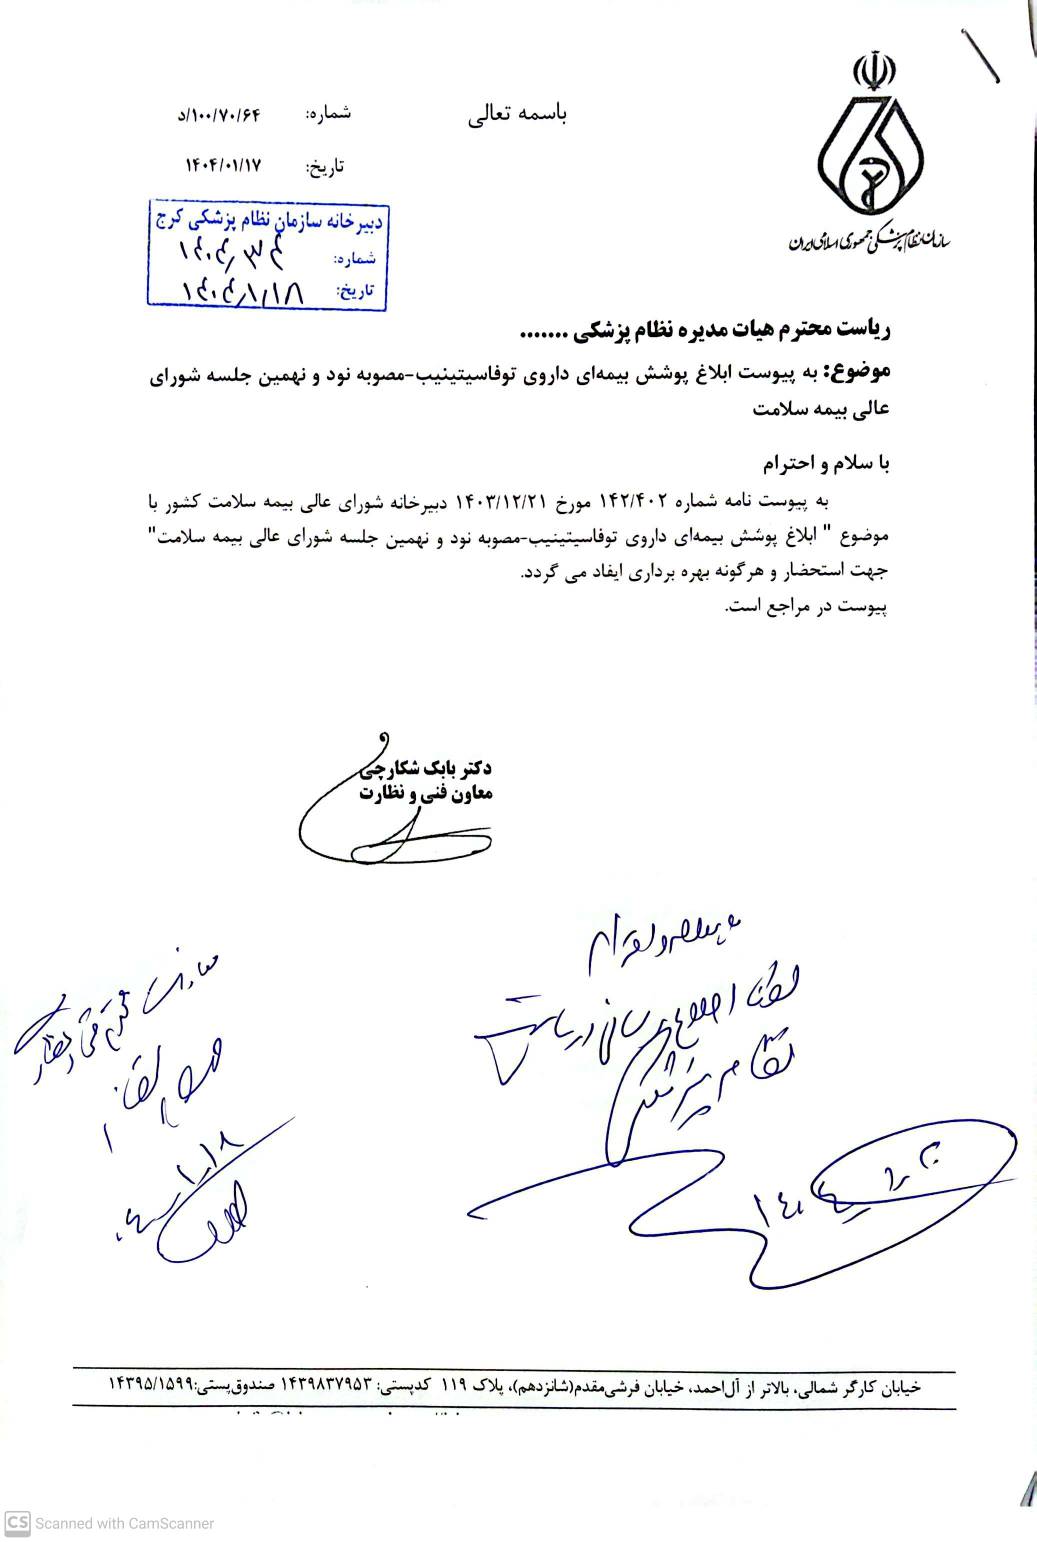 باسمه تعالی
شماره: ۶۴/۱۰۰/۷۰/د
تاریخ: ۱۴۰۴/۰۱/۱۷
سازمان نظام پزشکی جمهوری اسلامی ایران
دبیرخانه سازمان نظام پزشکی کرج
شماره: ۱۴۰۴/۳۴
تاریخ: ۱۴۰۴/۱/۱۸
ریاست محترم هیات مدیره نظام پزشکی .......
موضوع: به پیوست ابلاغ پوشش بیمه‌ای داروی توفاسیتینیب-مصوبه نود و نهمین جلسه شورای
عالی بیمه سلامت
با سلام و احترام
به پیوست نامه شماره ۱۴۲/۴۰۲ مورخ ۱۴۰۳/۱۲/۲۱ دبیرخانه شورای عالی بیمه سلامت کشور با
موضوع " ابلاغ پوشش بیمه‌ای داروی توفاسیتینیب-مصوبه نود و نهمین جلسه شورای عالی بیمه سلامت"
جهت استحضار و هرگونه بهره برداری ایفاد می گردد.
پیوست در مراجع است.
دکتر بابک شکارچی
معاون فنی و نظارت
لطفا اطلاع رسانی در سایت
نظام پزشکی
خیابان کارگر شمالی، بالاتر از آل‌احمد، خیابان فرشی‌مقدم(شانزدهم)، پلاک ۱۱۹ کدپستی: ۱۴۳۹۸۳۷۹۵۳ صندوق‌پستی:۱۴۳۹۵/۱۵۹۹
CS Scanned with CamScanner